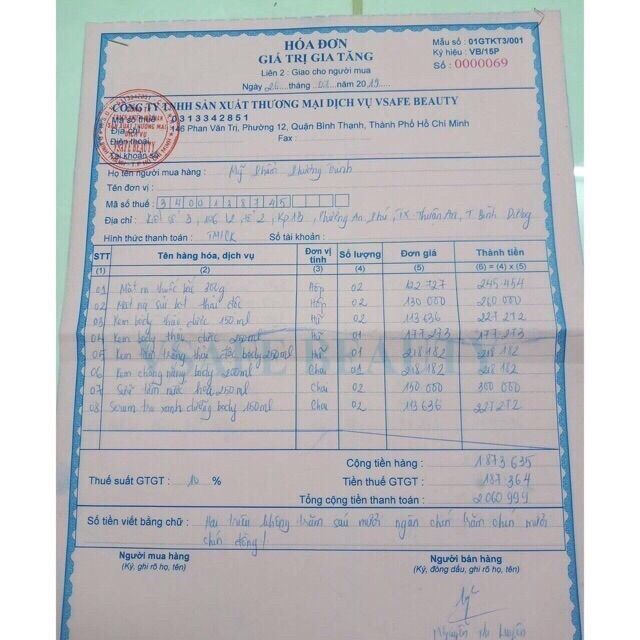 HÓA ĐƠN
GIÁ TRỊ GIA TĂNG
Liên 2 : Giao cho người mua
Ngày 26 tháng 03 năm 2019
Mẫu số : 01GTKT3/001
Ký hiệu : VB/15P
Số : 0000069
CÔNG TY TNHH SẢN XUẤT THƯƠNG MẠI DỊCH VỤ VSAFE BEAUTY
Mã số thuế 0313342851
Địa chỉ 146 Phan Văn Trị, Phường 12, Quận Bình Thạnh, Thành Phố Hồ Chí Minh
Điện thoại Fax :
Tài khoản số
SẢN XUẤT THƯƠNG MẠI
DỊCH VỤ
VSAFE BEAUTY
Họ tên người mua hàng : Mỹ Phẩm Phương
Tên đơn vị :
Mã số thuế : 3400188745
Địa chỉ : 3, tổ 2, Kp 1B, Phường An Phú, TX Thuận An, T. Bình Dương
Hình thức thanh toán : TM/CK Số tài khoản :
STT Tên hàng hóa, dịch vụ Đơn vị tính Số lượng Đơn giá Thành tiền
(1) (2) (3) (4) (5) (6) = (4) x (5)
01 Mặt nạ thuốc bắc 300g Hộp 02 122 727 245 454
02 Mặt nạ sủi bọt thải độc Hộp 02 130 000 260 000
03 Kem body thảo dược 150ml Hũ 02 113 636 227 272
04 Kem body thảo dược 250ml Hũ 01 177 273 177 273
05 Kem trắng thải độc body 250ml Hũ 01 218 182 218 182
06 Kem chống nắng body 200ml Chai 01 218 182 218 182
07 Sữa tắm nước hoa 250ml Chai 02 150 000 300 000
08 Serum trà xanh dưỡng body 150ml Chai 02 113 636 227 272
VSAFE BEAUTY
Cộng tiền hàng : 1 873 635
Thuế suất GTGT : 10 % Tiền thuế GTGT : 187 364
Tổng cộng tiền thanh toán : 2 060 999
Số tiền viết bằng chữ : Hai triệu không trăm sáu mươi ngàn chín trăm chín mươi
chín đồng!
Người mua hàng
(Ký, ghi rõ họ, tên)
Người bán hàng
(Ký, đóng dấu, ghi rõ họ, tên)
Nguyễn